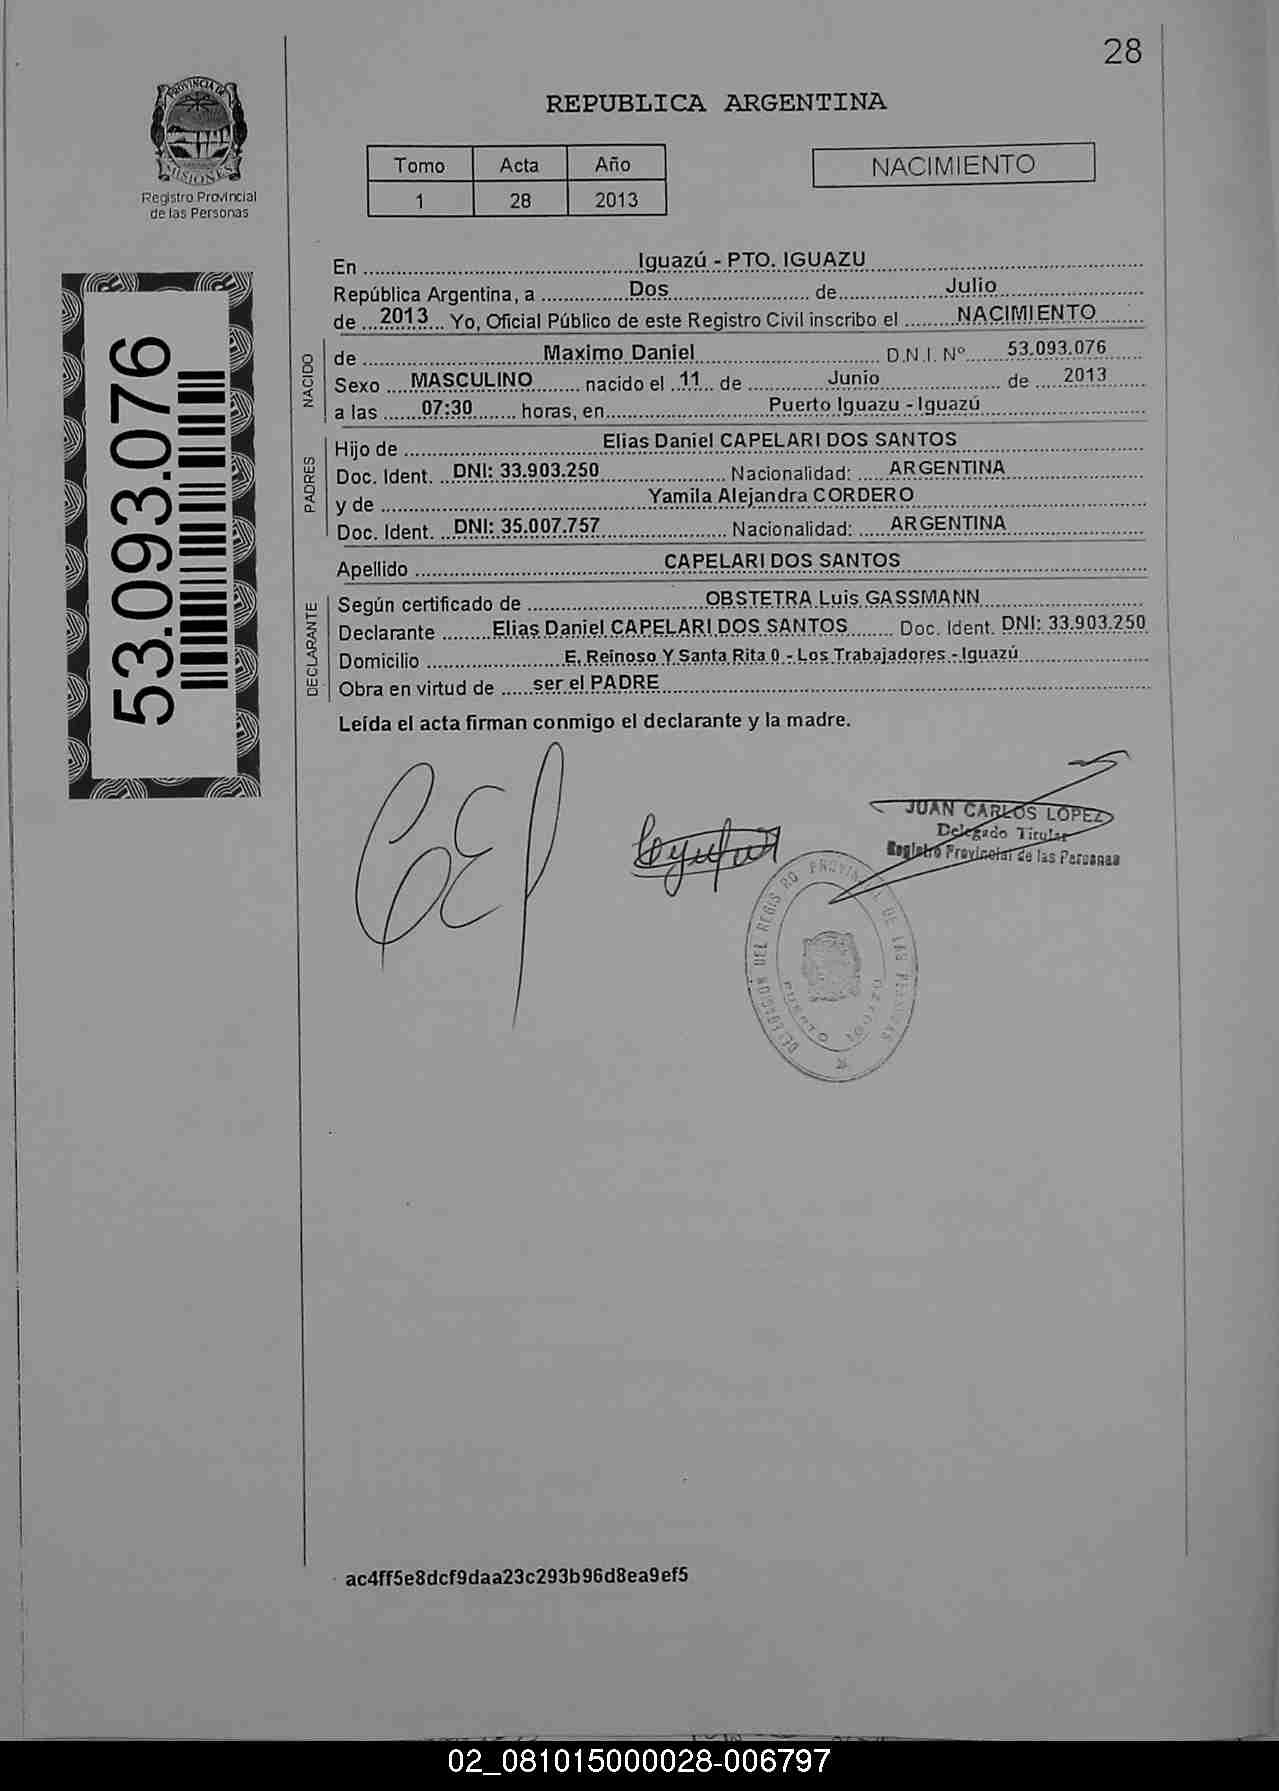 28
PROVINCIA DE
MISIONES
Registro Provincial
de las Personas
REPUBLICA ARGENTINA
Tomo Acta Año
1 28 2013
NACIMIENTO
53.093.076
En Iguazú - PTO. IGUAZU
República Argentina, a Dos de Julio
de 2013 Yo, Oficial Público de este Registro Civil inscribo el NACIMIENTO
NACIDO
de Maximo Daniel D.N.I. Nº 53.093.076
Sexo MASCULINO nacido el 11 de Junio de 2013
a las 07:30 horas, en Puerto Iguazu - Iguazú
PADRES
Hijo de Elias Daniel CAPELARI DOS SANTOS
Doc. Ident. DNI: 33.903.250 Nacionalidad: ARGENTINA
y de Yamila Alejandra CORDERO
Doc. Ident. DNI: 35.007.757 Nacionalidad: ARGENTINA
Apellido CAPELARI DOS SANTOS
DECLARANTE
Según certificado de OBSTETRA Luis GASSMANN
Declarante Elias Daniel CAPELARI DOS SANTOS Doc. Ident. DNI: 33.903.250
Domicilio E. Reinoso Y Santa Rita 0 - Los Trabajadores - Iguazú
Obra en virtud de ser el PADRE
Leída el acta firman conmigo el declarante y la madre.
JUAN CARLOS LOPEZ
Delegado Titular
Registro Provincial de las Personas
DELEGACION DEL REGISTRO PROVINCIAL DE LAS PERSONAS
PUERTO IGUAZU
ac4ff5e8dcf9daa23c293b96d8ea9ef5
02_081015000028-006797